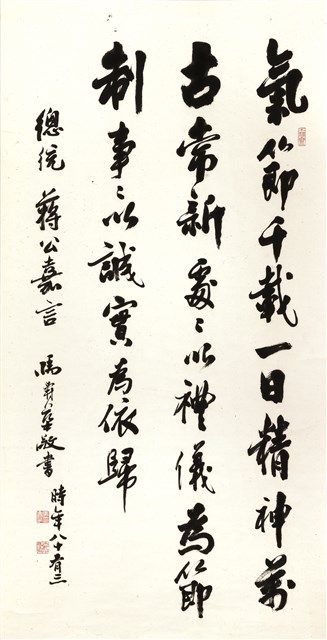 氣節千載一日精神萬
古常新處〻以禮儀為節
制事〻以誠實為依歸
總統 蔣公嘉言 馮 敬書 時年八十有三